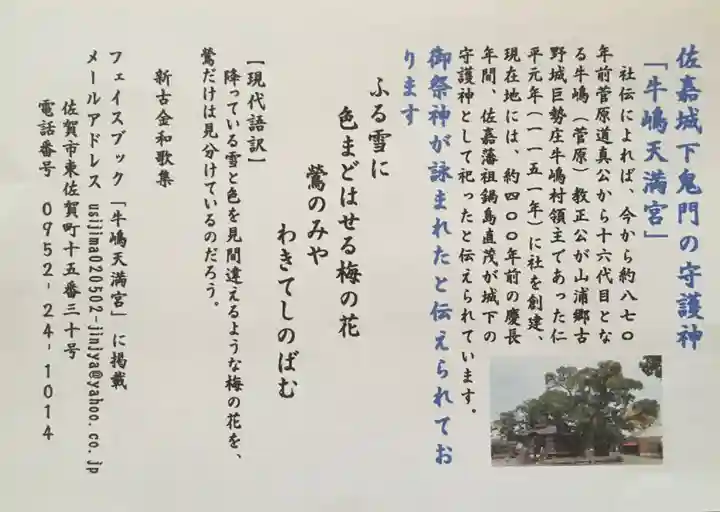 佐嘉城下鬼門の守護神
「牛嶋天満宮」
社伝によれば、今から約八七〇
年前菅原道真公から十六代目とな
る牛嶋(菅原)教正公が山浦郷古
野城巨勢庄牛嶋村領主であった仁
平元年(一一五一年)に社を創建、
現在地には、約四〇〇年前の慶長
年間、佐嘉藩祖鍋島直茂が城下の
守護神として祀ったと伝えられています。
御祭神が詠まれたと伝えられてお
ります
ふる雪に
色まどはせる梅の花
鶯のみや
わきてしのばむ
【現代語訳】
降っている雪と色を見間違えるような梅の花を、
鶯だけは見分けているのだろう。
新古金和歌集
フェイスブック「牛嶋天満宮」に掲載
メールアドレス usijima020502-jinjya@yahoo.co.jp
佐賀市東佐賀町十五番三十号
電話番号 0952-24-1014